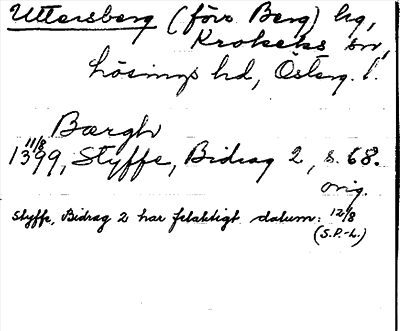 Uttersberg (förr Berg) hg,
Krokeks sn,
Lösings hd, Österg. l.
Bærgh
11/8
1399, Styffe, Bidrag 2, s. 68.
orig.
Styffe, Bidrag 2 har felaktigt datum: 12/8
(S.P.-L.)